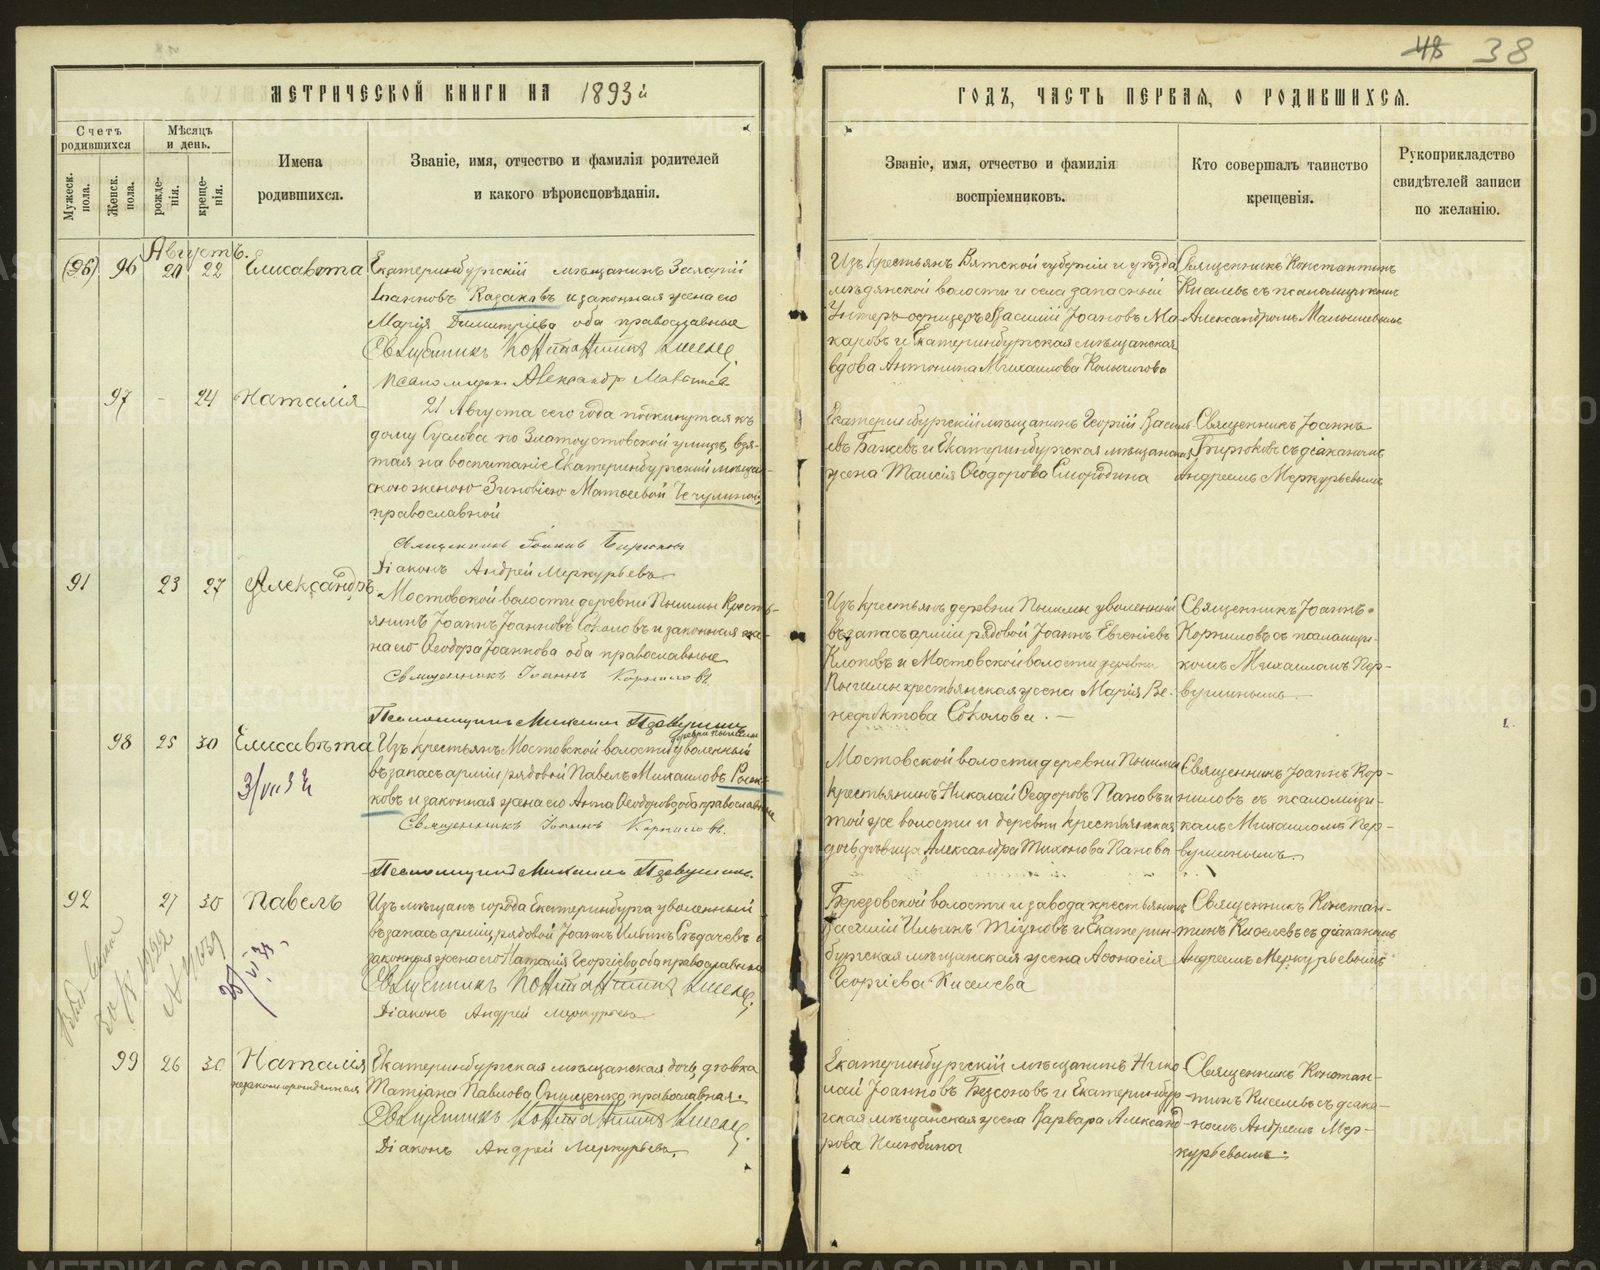 48 38
МЕТРИЧЕСКОЙ КНИГИ НА 1893й
ГОДЪ, ЧАСТЬ ПЕРВАЯ, О РОДИВШИХСЯ.
Счетъ родившихся
Мужеск. пола.
Женск. пола.
Мѣсяцъ и день.
рожде-нія.
креще-нія.
Имена
родившихся.
Званіе, имя, отчество и фамилія родителей
и какого вѣроисповѣданія.
Званіе, имя, отчество и фамилія
воспріемниковъ.
Кто совершалъ таинство
крещенія.
Рукоприкладство
свидѣтелей записи
по желанію.
Августъ.
(96) 96 20 22 Елисавета
Екатеринбургскій мѣщанинъ
Іоанновъ Казаковъ и законная жена его
Марія Димитріева оба православные
Священникъ Константинъ Киселев
Псаломщикъ Александр
Изъ крестьянъ Вятской губерніи и уѣзда
мѣдянской волости и села запасный
Унтеръ-офицеръ Василій Іоановъ Ма-
каровъ и Екатеринбургская мѣщанская
вдова Антонина Михаилова
Священникъ Константинъ
Киселевъ съ псаломщикомъ
Александромъ Малышевымъ
97 - 24 Наталія
21 Августа сего года подкинутая къ
дому Суслова по Златоустовской улицѣ, взя-
тая на воспитаніе Екатеринбургскій мѣщан-
скою женою Зиновіею Матѳеевой Чечулиной,
православной
Священникъ Іоаннъ Бирюковъ
Діаконъ Андрей Меркурьевъ
Екатеринбургскій мѣщанинъ Георгій Василь-
евъ Бажевъ и Екатеринбургская мѣщанская
жена Таисія Ѳеодорова Смородина
Священникъ Іоаннъ
Бирюковъ съ діакономъ
Андреемъ Меркурьевымъ
91 23 27 Александръ
Мостовской волости деревни Пышмы Кресть-
янинъ Іоаннъ Іоанновъ Соколовъ и законная же-
на его Ѳеодора Іоаннова оба православные
Священникъ Іоаннъ Корниловъ
Псаломщикъ Михаилъ Первушинъ
Изъ крестьянъ деревни Пышмы уволенный
въ запасъ арміи рядовой Іоаннъ Евгеніевъ
Клоповъ и Мостовской волости деревни
Пышмы крестьянская жена Марія Ве-
недиктова Соколова.
Священникъ Іоаннъ
Корниловъ съ псаломщи-
комъ Михаиломъ Пер-
вушинымъ
98 25 30 Елисавета
деревни Пышмы
Изъ крестьянъ Мостовской волости уволенный
въ запасъ арміи рядовой Павелъ Михаиловъ
ковъ и законная жена его Анна Ѳеодорова, оба православные
Священникъ Іоаннъ Корниловъ.
Псаломщикъ Михаилъ Первушинъ.
Мостовской волости деревни Пышмы
крестьянинъ Николай Ѳеодоровъ Пановъ и
той же волости и деревни крестьянская
дочь, дѣвица Александра Тихонова Панова
Священникъ Іоаннъ Кор-
ниловъ съ псаломщи-
комъ Михаиломъ Пер-
вушинымъ.
92 27 30 Павелъ
Изъ мѣщанъ города Екатеринбурга уволенный
въ запасъ арміи, рядовой Іоаннъ Ильинъ Сѣдачевъ и
законная жена его Наталія Георгіева, оба православные
Священникъ Константинъ Киселев
Діаконъ Андрей Меркурьевъ
Березовской волости и завода крестьянинъ
Василій Ильинъ Тіуновъ и Екатерин-
бургская мѣщанская жена Аѳонасія
Георгіева Киселева
Священникъ Констан-
тинъ Киселевъ съ діакономъ
Андреемъ Меркурьевымъ
99 26 30 Наталія
незаконнорожденная
Екатеринбургская мѣщанская дочь, дѣвка
Татіана Павлова Онищенко, православная.
Священникъ Константинъ Киселев
Діаконъ Андрей Меркурьевъ
Екатеринбургскій мѣщанинъ Нико-
лай Іоанновъ Безсоновъ и Екатеринбур-
гская мѣщанская жена Варвара Александ-
рова Пелюбина
Священникъ Констан-
тинъ Киселевъ съ діако-
номъ Андреемъ Мер-
курьевымъ.
METRIKI.GASO-URAL.RU